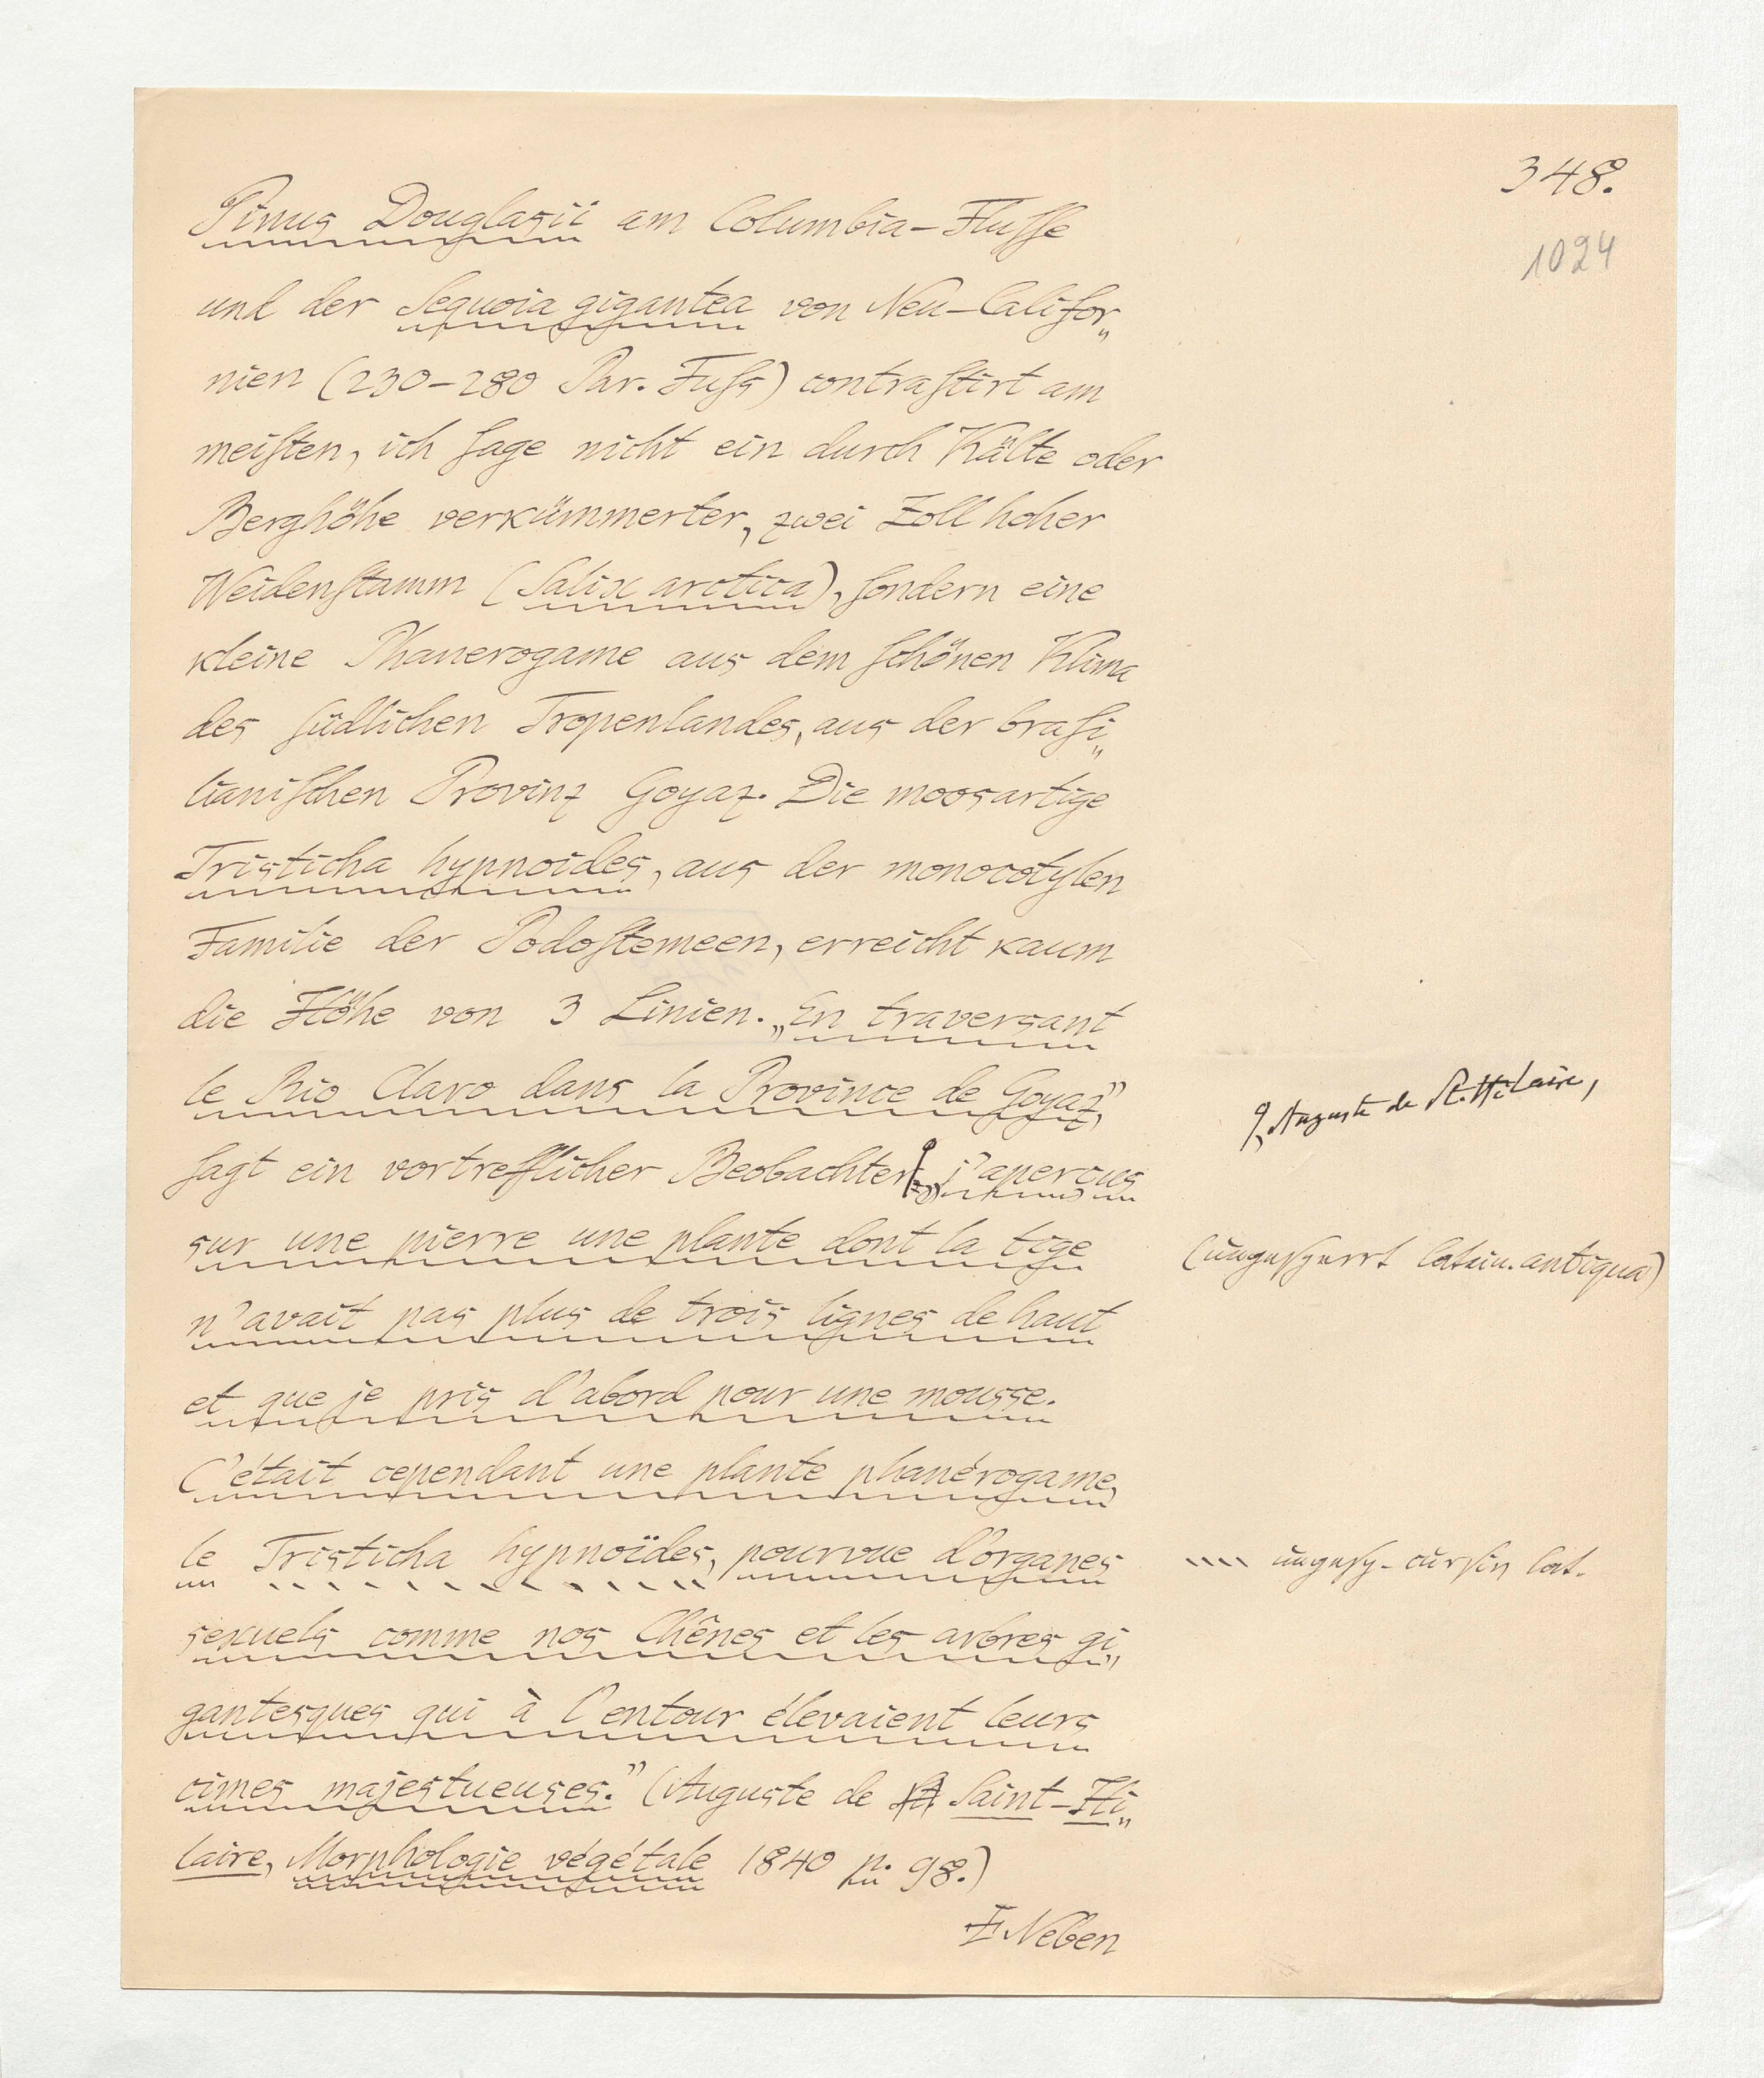 348.
1024
Pinus Douglasii am Columbia-Fluſſe
und der Sequoia gigantea von Neu-Califor„
nien (230-280 Par. Fuſs) contraſtirt am
meiſten, ich ſage nicht ein durch Kälte oder
Berghöhe verkümmerter, zwei Zoll hoher
Weidenſtamm (Salix arctica), ſondern eine
kleine Phanerogame aus dem ſchönen Klima
des ſüdlichen Tropenlandes, aus der braſi„
lianiſchen Provinz Goyaz. Die moosartige
Tristicha hypnoides, aus der monocotylen
Familie der Podoſtemeen, erreicht kaum
die Höhe von 3 Linien. „En traversant
le Rio Claro dans la Province de Goyaz",
Auguste de St. Hilaire,
ſagt ein vortrefflicher Beobachter „j'aperçus
sur une pierre une plante dont la tige
(ungesperrt latein. antiqua)
n'avait pas plus de trois lignes de haut
et que je pris d'abord pour une mousse.
C'était cependant une plante phanérogame,
le Tristicha hypnoïdes, pourvue d'organes
ungesp. cursiv lat.
sexuels comme nos Chênes et les arbres gi„
gantesques qui à l'entour élevaient leurs
cimes majestueuses." (Auguste de St. Saint-Hi„
laire, Morphologie végétale 1840 p. 98.)
Neben